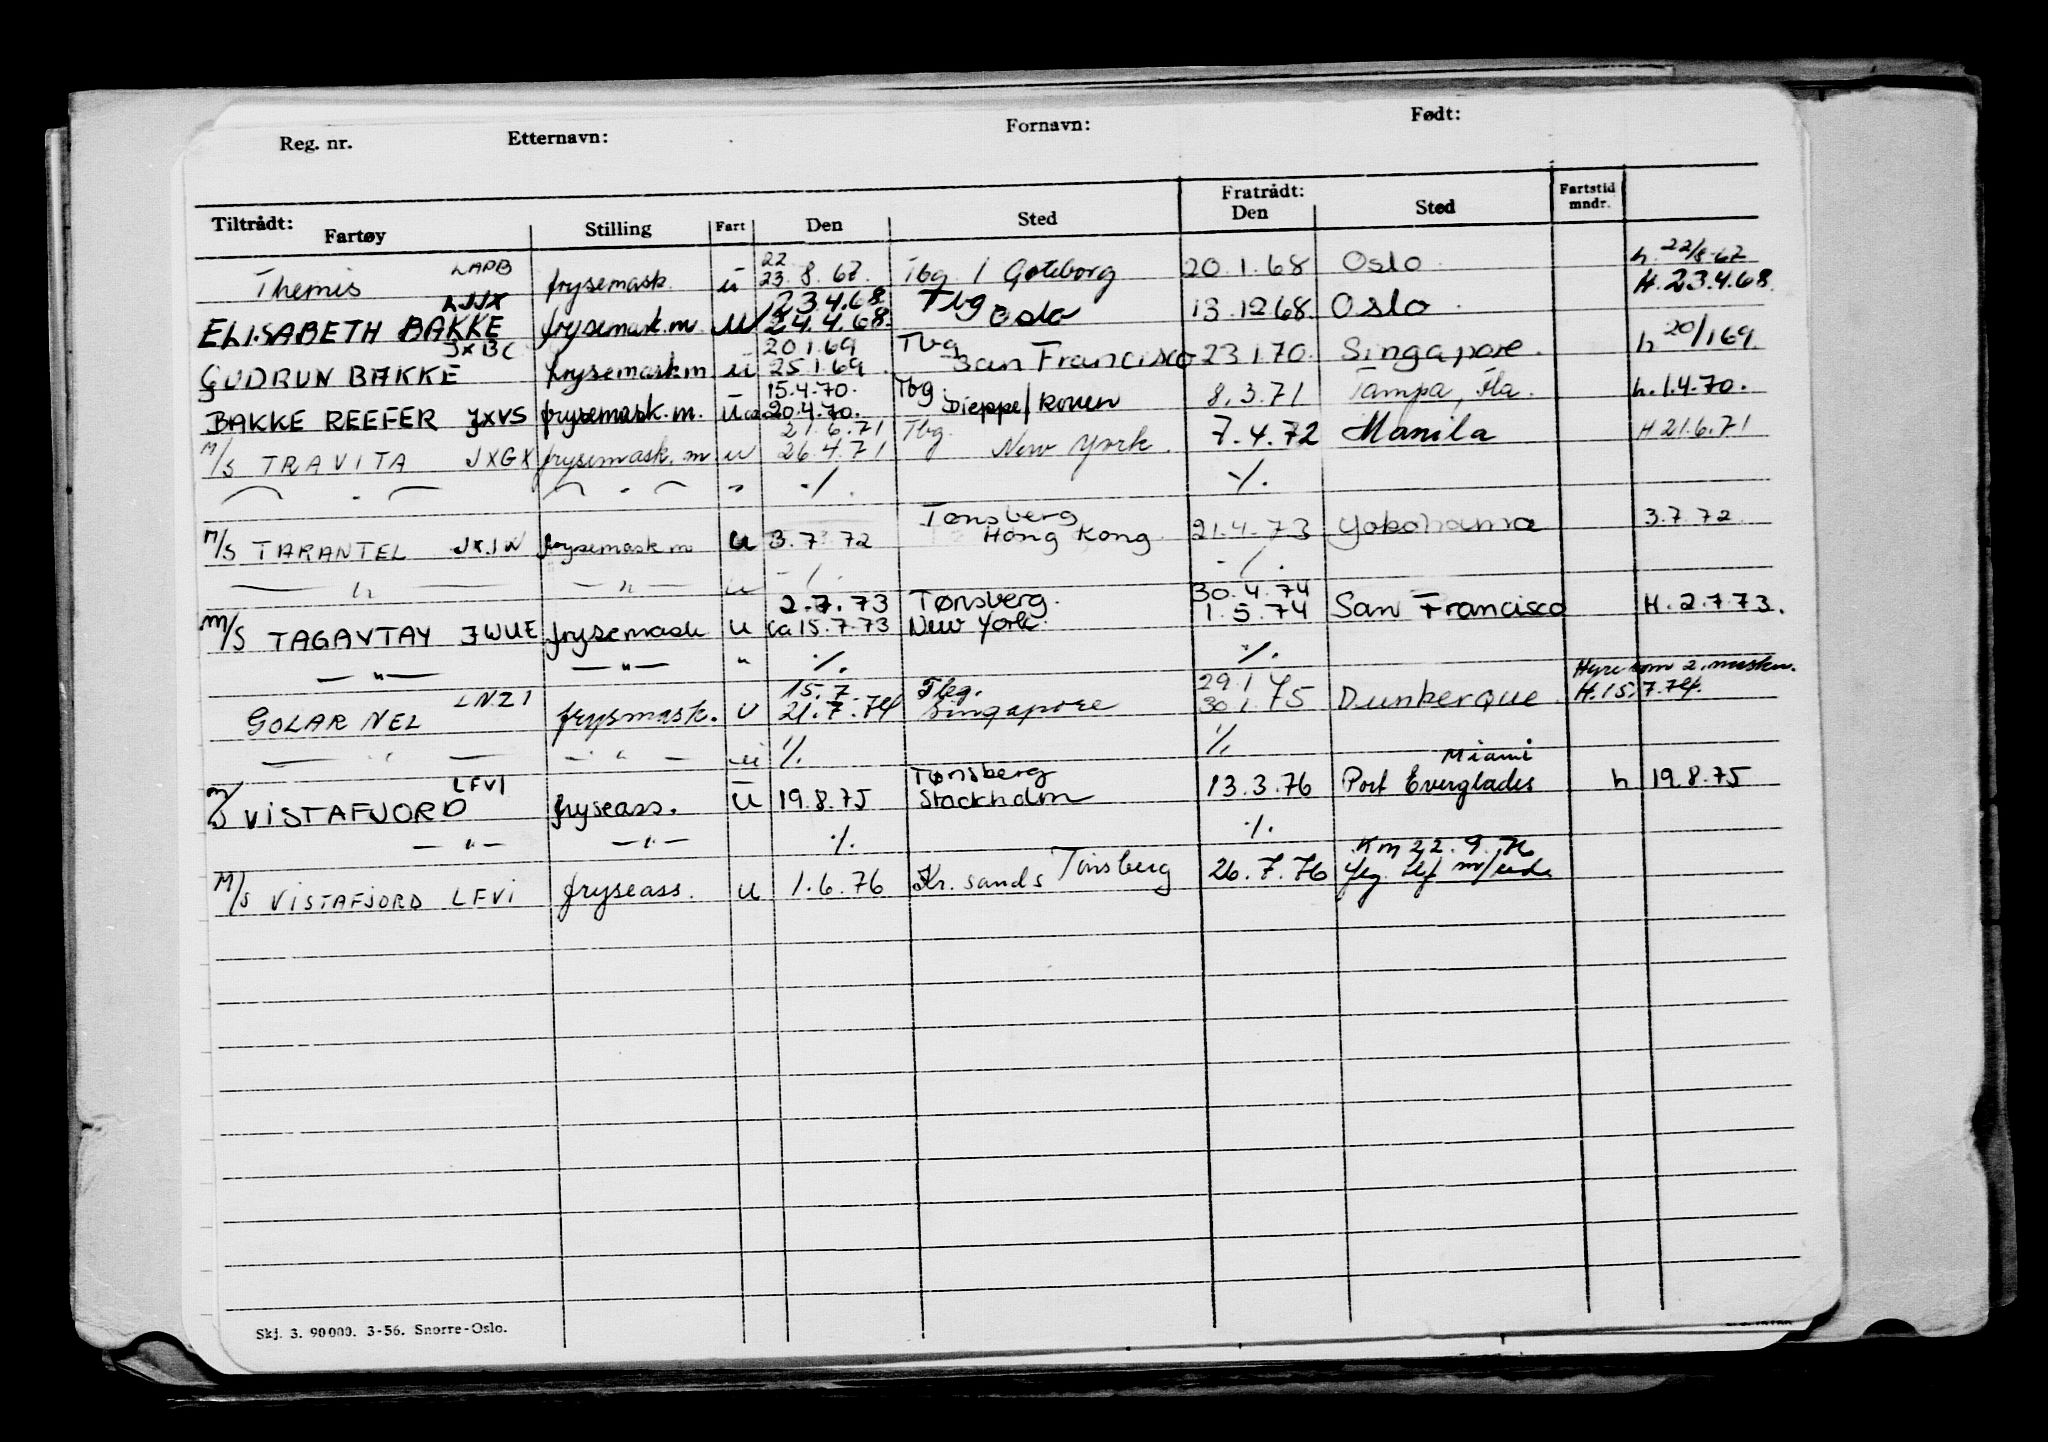 Reg. nr. Etternavn: Fornavn: Født:
Tiltrådt: Fratrådt: Fartstid
Fartøy Stilling Fart Den Sted Den Sted mndr.
LAPB 22 h. 22/8-67
Themis frysemask. u 23.8.67. Tbg / Göteborg 20.1.68 Oslo
LJJX 23.4.68. Tbg H. 23.4.68.
ELISABETH BAKKE frysemask.m. u 24.4.68. Oslo 13.12 68. Oslo
JXBC 20 1.69 Tbg
GUDRUN BAKKE frysemask m. u 25 1.69 San Francisco 23 1 70. Singapore. h 20/1 69.
15.4.70. Tbg.
BAKKE REEFER JXVS frysemask.m. u ca 20.4.70. Dieppe/Rouen 8.3.71 Tampa, Fla. h. 1.4.70.
21.6.71 Tbg.
M/S TRAVITA JXGX frysemask. m u 26.4.71 New York. 7.4.72 Manila H 21.6.71
— " — — " — " ./. ./.
Tønsberg
M/S TARANTEL JXJW frysemask m u 3.7 72 Hong Kong. 21.4.73 Yokohama 3.7 72.
— " — — " — u ./. ./.
2.7.73 Tønsberg. 30.4.74
M/S TAGAYTAY JWUE frysemask u ca 15.7.73 New York. 1.5.74 San Francisco H. 2.7 73.
— " — — " — " ./. ./.
Hyre som 2. maskn.
LNZI 15.7. Tbg. 29.1
GOLAR NEL frysmask. u 21.7.74 Singapore 30.1 75 Dunkerque. H. 15.7.74.
— " — — " — u ./. ./.
LFVI Tønsberg Miami
M/S VISTAFJORD fryseass. u 19.8.75 Stockholm 13.3.76 Port Everglades h 19.8.75
— " — — " — ./. ./.
Km 22.9.76
M/S VISTAFJORD LFVI fryseass. u 1.6.76 Kr.sands Tønsberg 26.7.76
Skj. 3. 90000. 3-56. Snorre-Oslo.